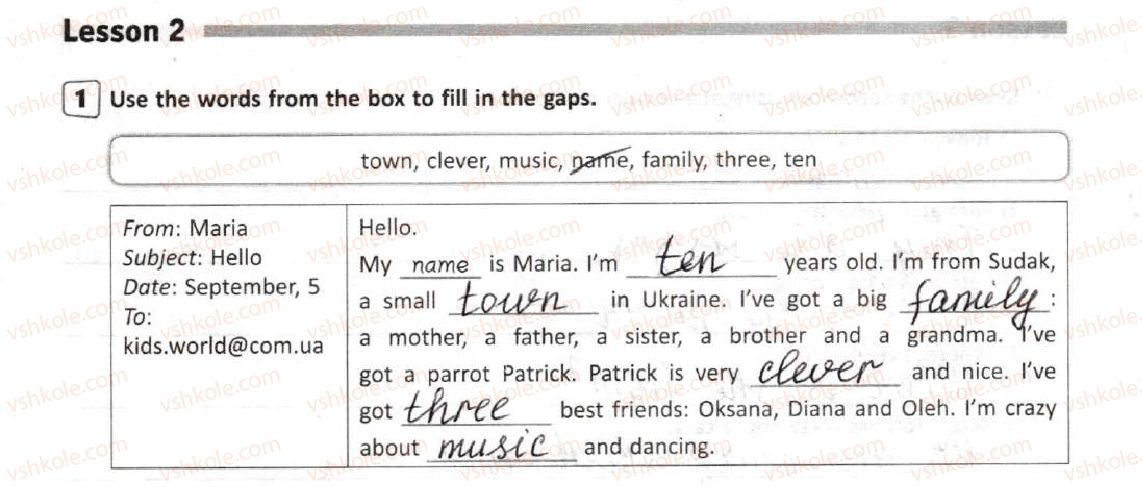 Lesson 2
1 Use the words from the box to fill in the gaps.
town, clever, music, name, family, three, ten
From: Maria
Subject: Hello
Date: September, 5
To:
kids.world@com.ua
Hello.
My name is Maria. I'm ten years old. I'm from Sudak,
a small town in Ukraine. I've got a big family :
a mother, a father, a sister, a brother and a grandma. I've
got a parrot Patrick. Patrick is very clever and nice. I've
got three best friends: Oksana, Diana and Oleh. I'm crazy
about music and dancing.
vshkole.com